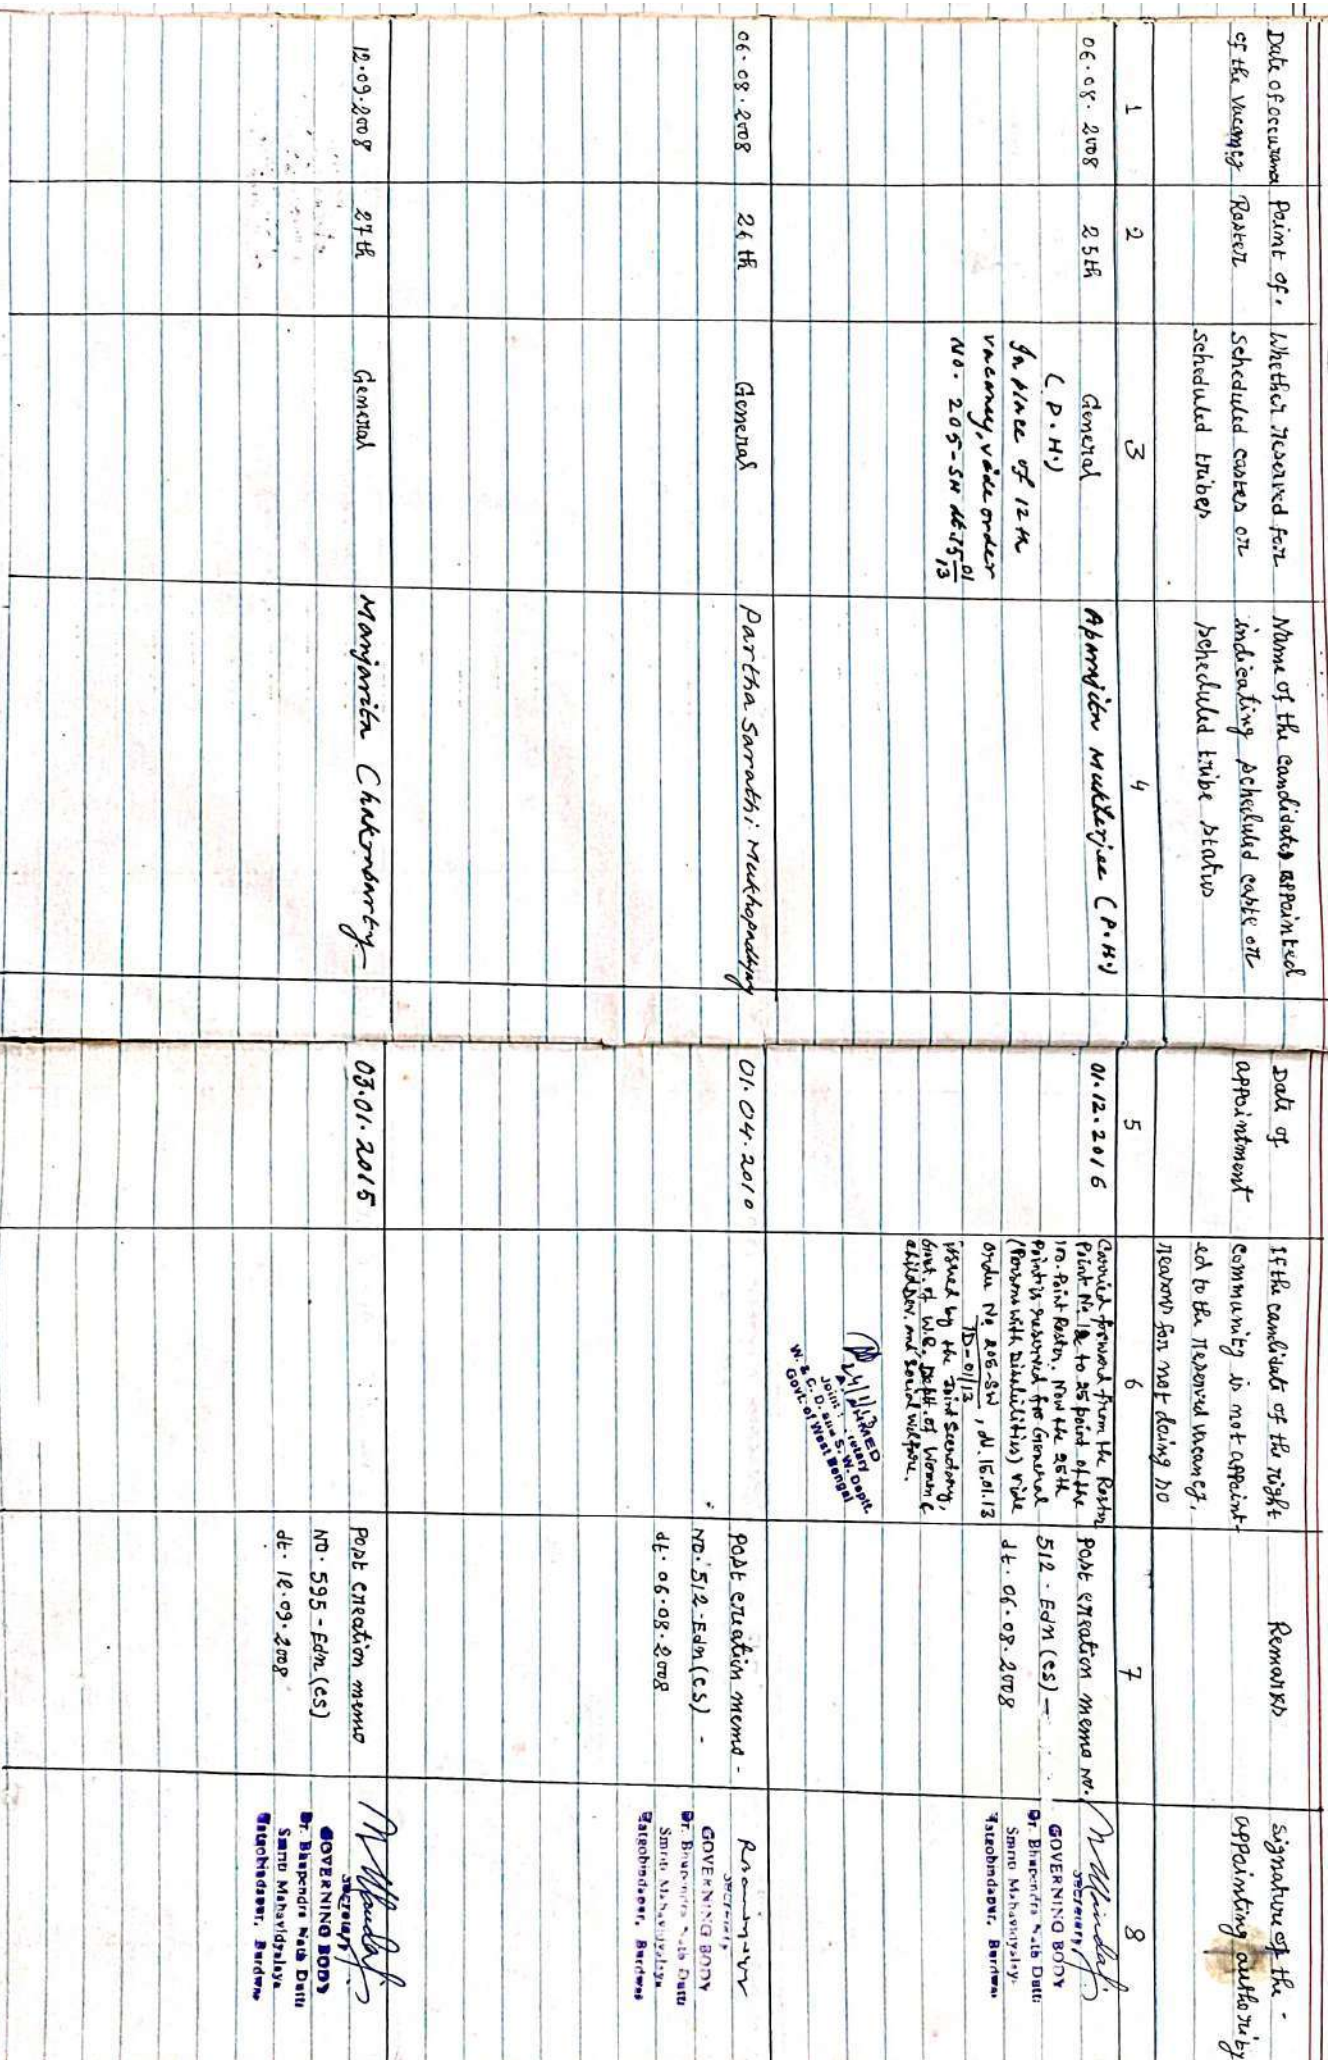 Date of occurance
of the vacancy
Point of.
Roster
Whether reserved for
scheduled castes or
scheduled tribes
Name of the candidates appointed
indicating scheduled caste or
scheduled tribe status
Date of
appointment
If the candidate of the right
community is not appoint-
ed to the reserved vacancy,
reasons for not doing so
Remarks
signature of the -
appointing authority
1
2
3
4
5
6
7
8
06.08.2008
25th
General
(P.H.)
In place of 12th
vacancy, vide order
No. 205-SW dt. 15/01/13
Aparajita Mukherjee (P.H.)
01.12.2016
Carried forward from the Roster
Point No. 12 to 25 point of the
100-Point Roster. Now the 25th
point is reserved for General
(Persons with Disabilities) vide
order No 205-SW, dt. 15.01.13
TD-01/13
issued by the Joint Secretary,
Govt. of W.B. Deptt. of Women &
child Dev. and Social Welfare.
24/1/13
AHMED
Joint
W. & C. D. and S. W. Deptt.
Govt. of West Bengal
Post creation memo No.
512 - Edn (cs) -
dt. 06.08.2008
Secretary
GOVERNING BODY
Dr. Bhupendra Nath Dutta
Smriti Mahavidyalay
Hatgobindapur, Burdwan
06.08.2008
26th
General
Partha Sarathi Mukhopadhyay
01.04.2010
Post creation memo -
No. 512-Edn (cs) -
dt. 06.08.2008
Secretary
GOVERNING BODY
Dr. Bhupendra Nath Dutta
Smriti Mahavidyalaya
Hatgobindapur, Burdwan
12.09.2008
27th
General
Manjarita Chakrabarty
03.01.2015
Post creation memo
No. 595 - Edn (cs)
dt. 12.09.2008
Secretary
GOVERNING BODY
Dr. Bhupendra Nath Dutta
Smriti Mahavidyalaya
Hatgobindapur, Burdwan